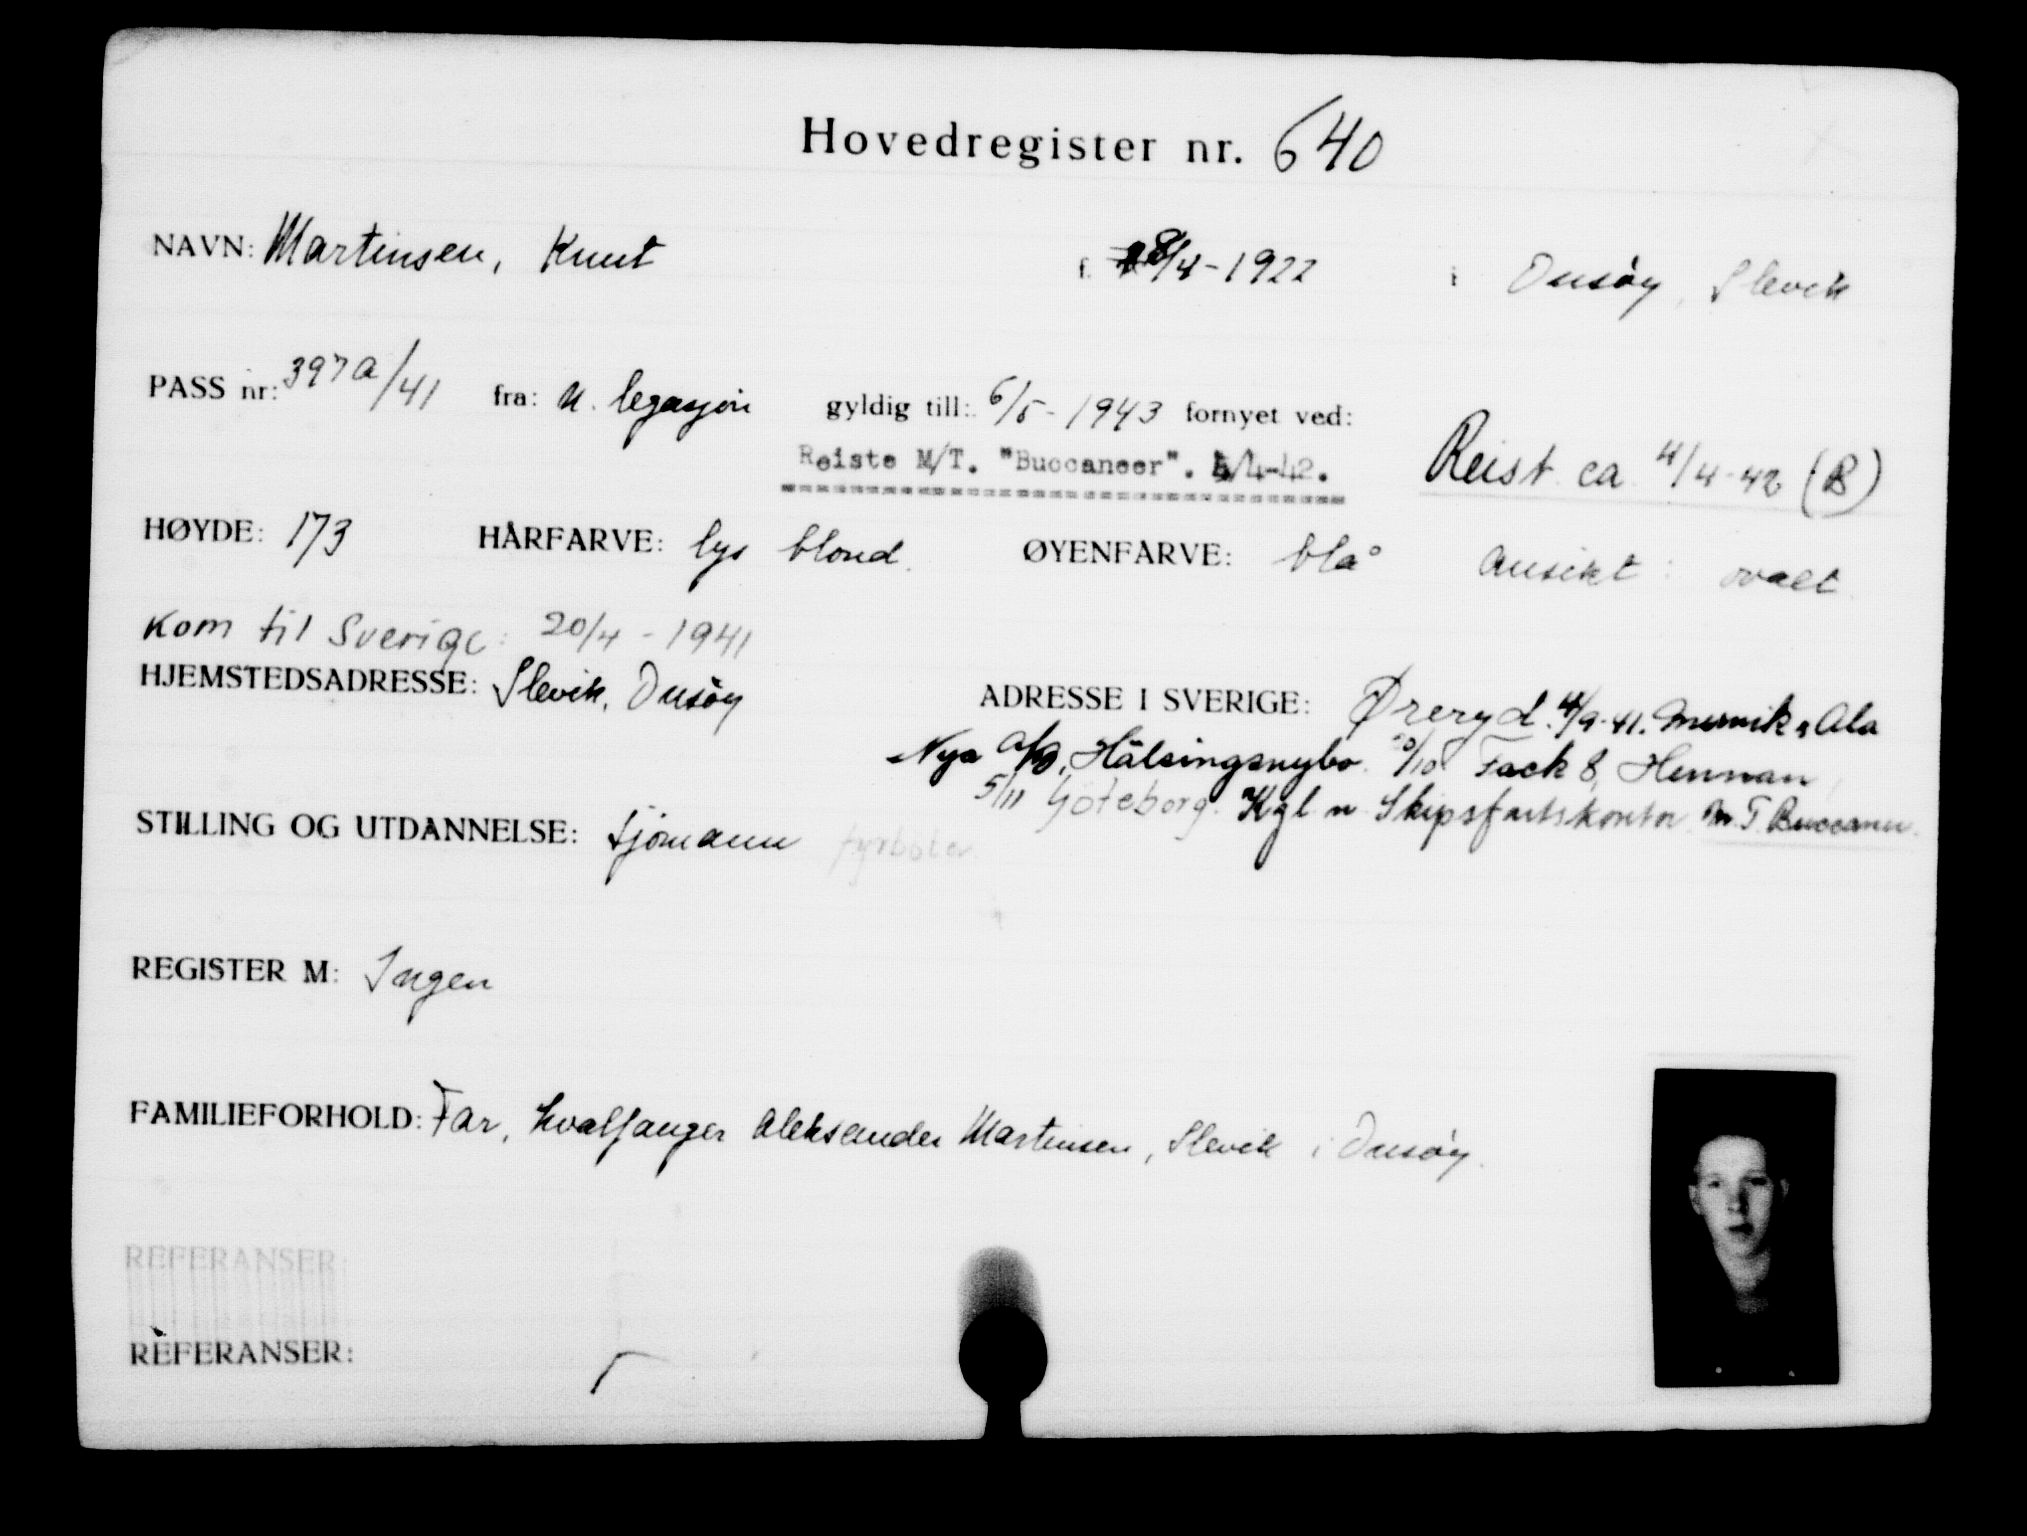 Hovedregister nr. 640
NAVN: Martinsen, Knut f. 8/4-1922 i Onsøy, Slevik
PASS nr: 397a/41 fra: n. legasjon gyldig till: 6/5-1943 fornyet ved:
Reiste M/T. "Buccaneer". 4/4-42. Reist ca 4/4-42 (B)
HØYDE: 173 HÅRFARVE: lys blond. ØYENFARVE: blå Ansikt: ovalt
Kom til Sverige: 20/4-1941
HJEMSTEDSADRESSE: Slevik, Onsøy ADRESSE I SVERIGE: Øreryd. 4/9-41. Ala
Nya A/B, Hälsingsnybo. 20/10 Fack 8, Hennan,
5/11 Göteborg. Kgl n Skipsfartskontor M.T. Buccaneer.
STILLING OG UTDANNELSE: sjømann fyrbøter
REGISTER M: Ingen
FAMILIEFORHOLD: Far, hvalfanger Aleksander Martinsen, Slevik i Onsøy.
REFERANSER:
REFERANSER: